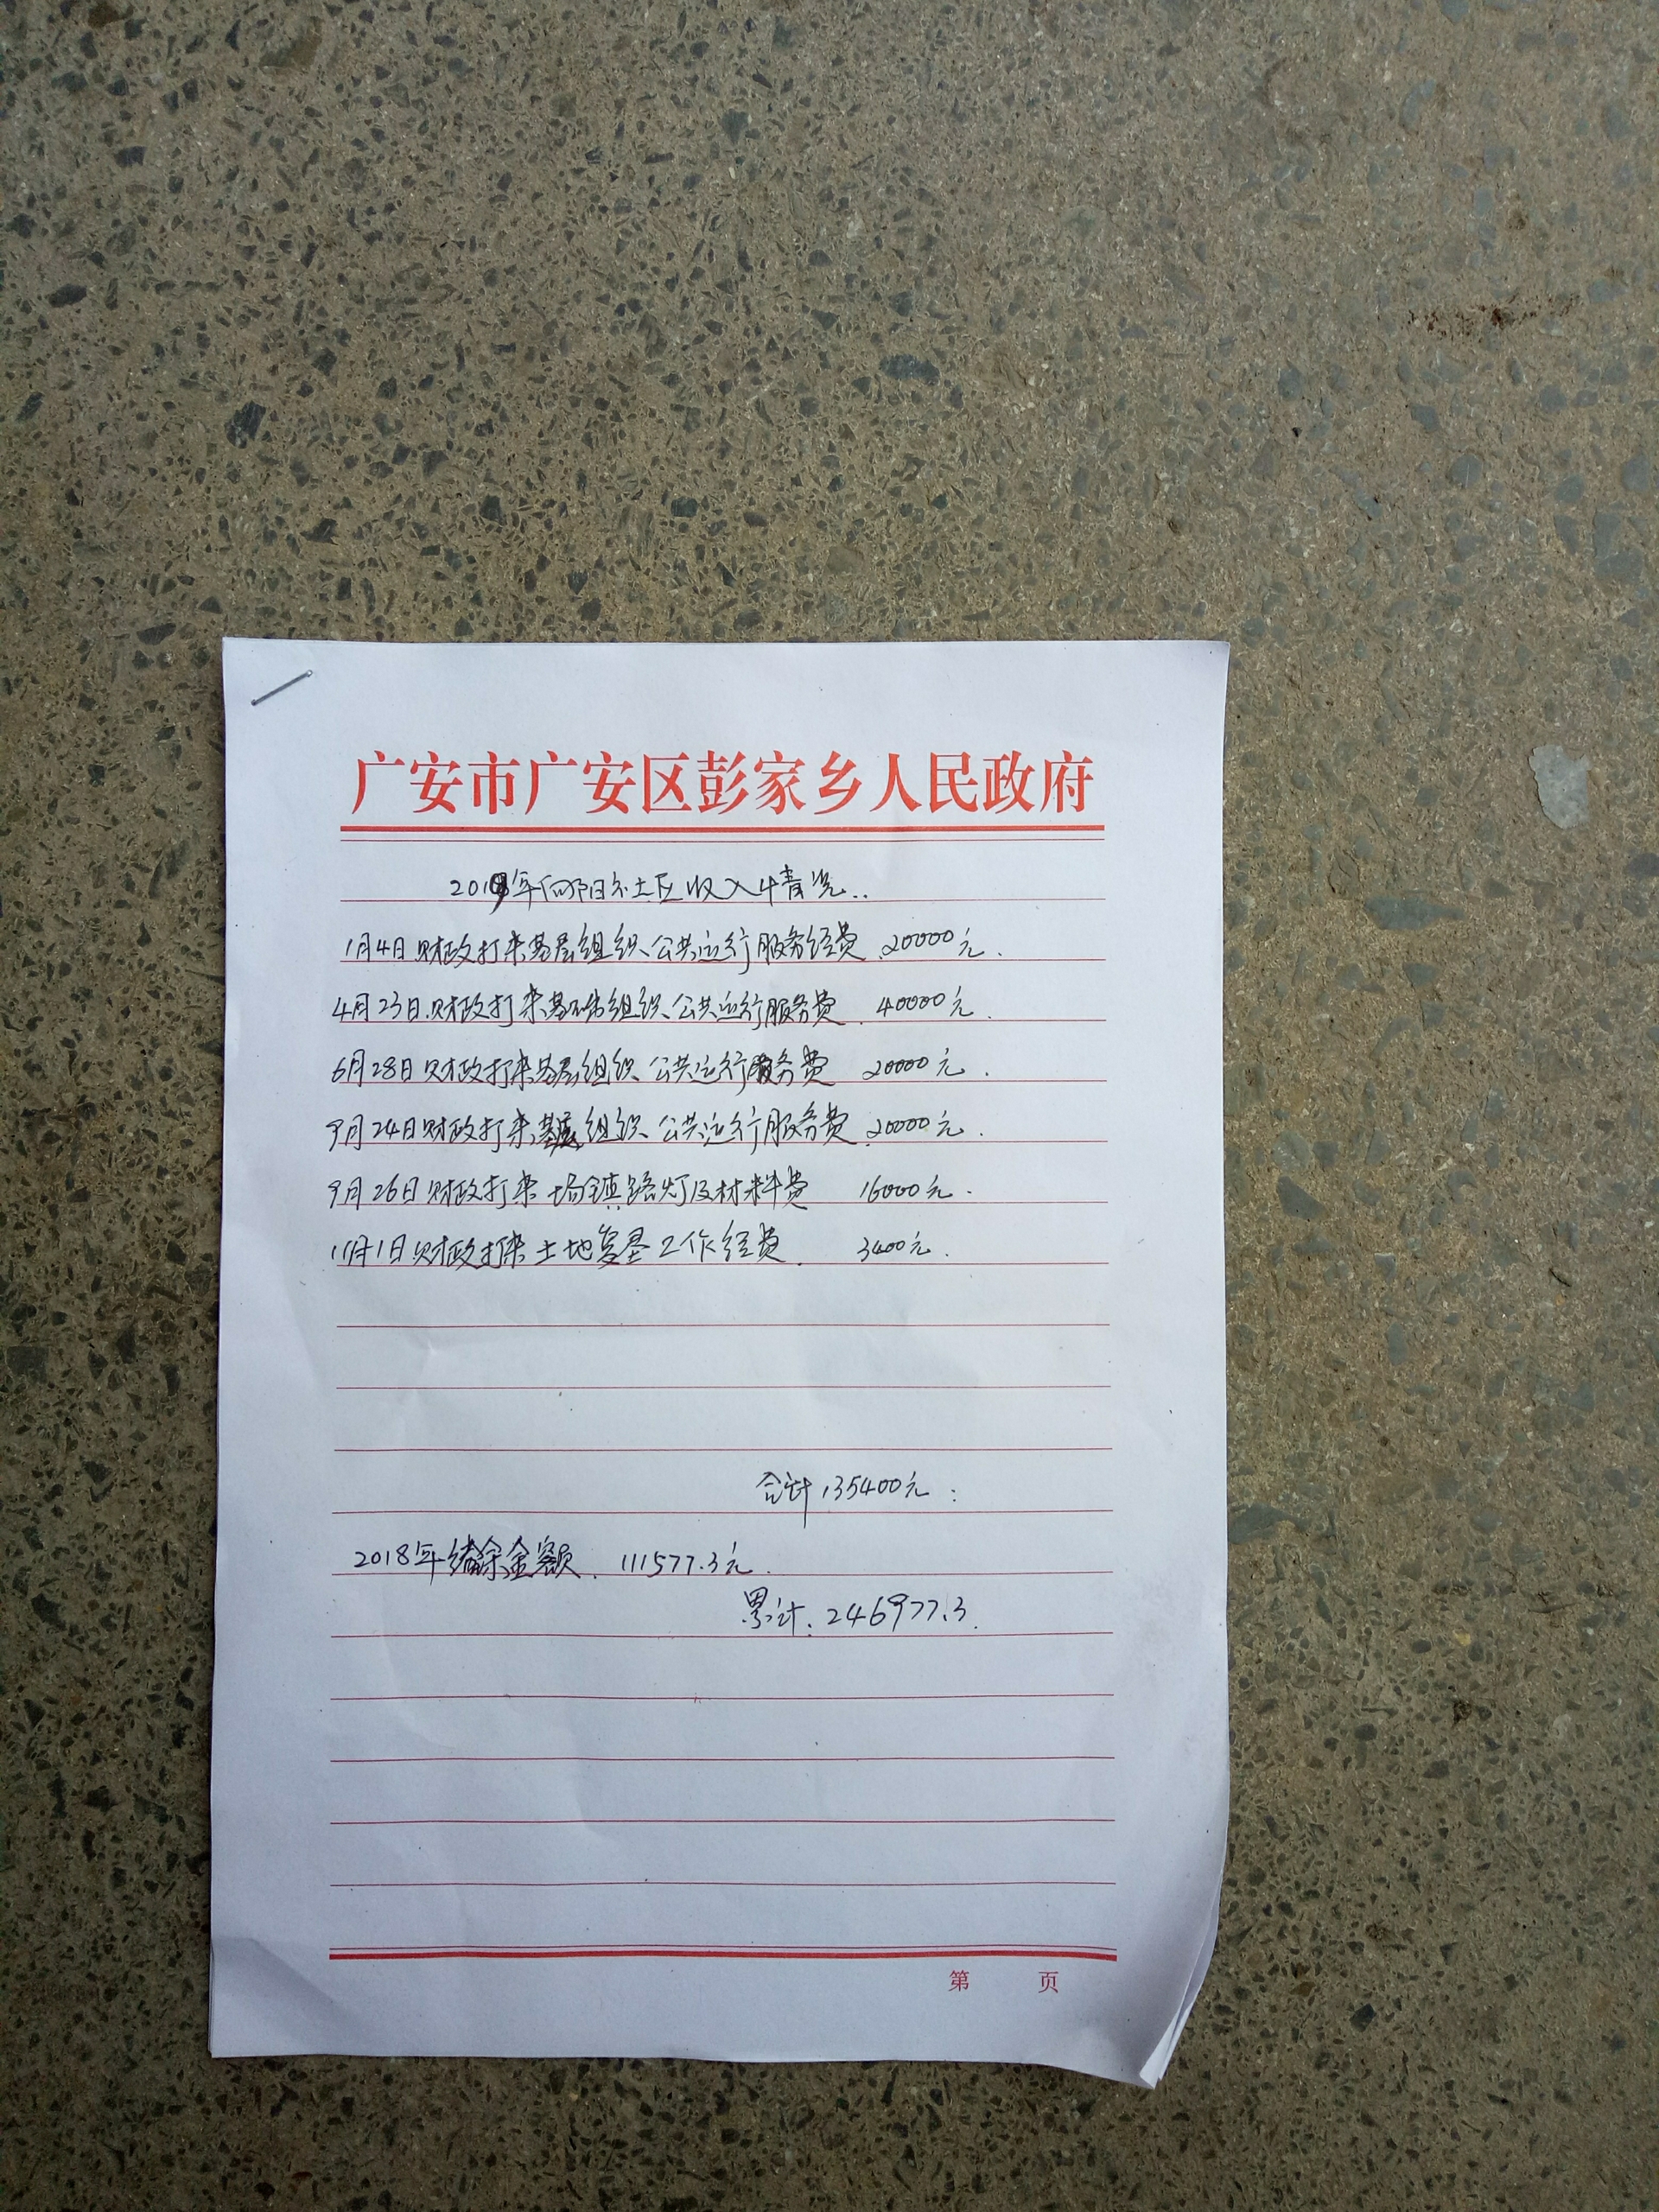 广安市广安区彭家乡人民政府
2019年向阳社区收入情况..
1月4日财政打来基层组织、公共运行服务经费 20000元.
4月23日.财政打来基础组织、公共运行服务费 40000元.
6月28日财政打来基层组织、公共运行服务费 20000元.
9月24日财政打来基层组织、公共运行服务费 20000元.
9月26日财政打来场镇路灯及材料费 16000元.
11月1日财政打来土地复垦工作经费. 3400元.
合计135400元:
2018年结余金额. 111577.3元.
累计:246977.3.
第 页